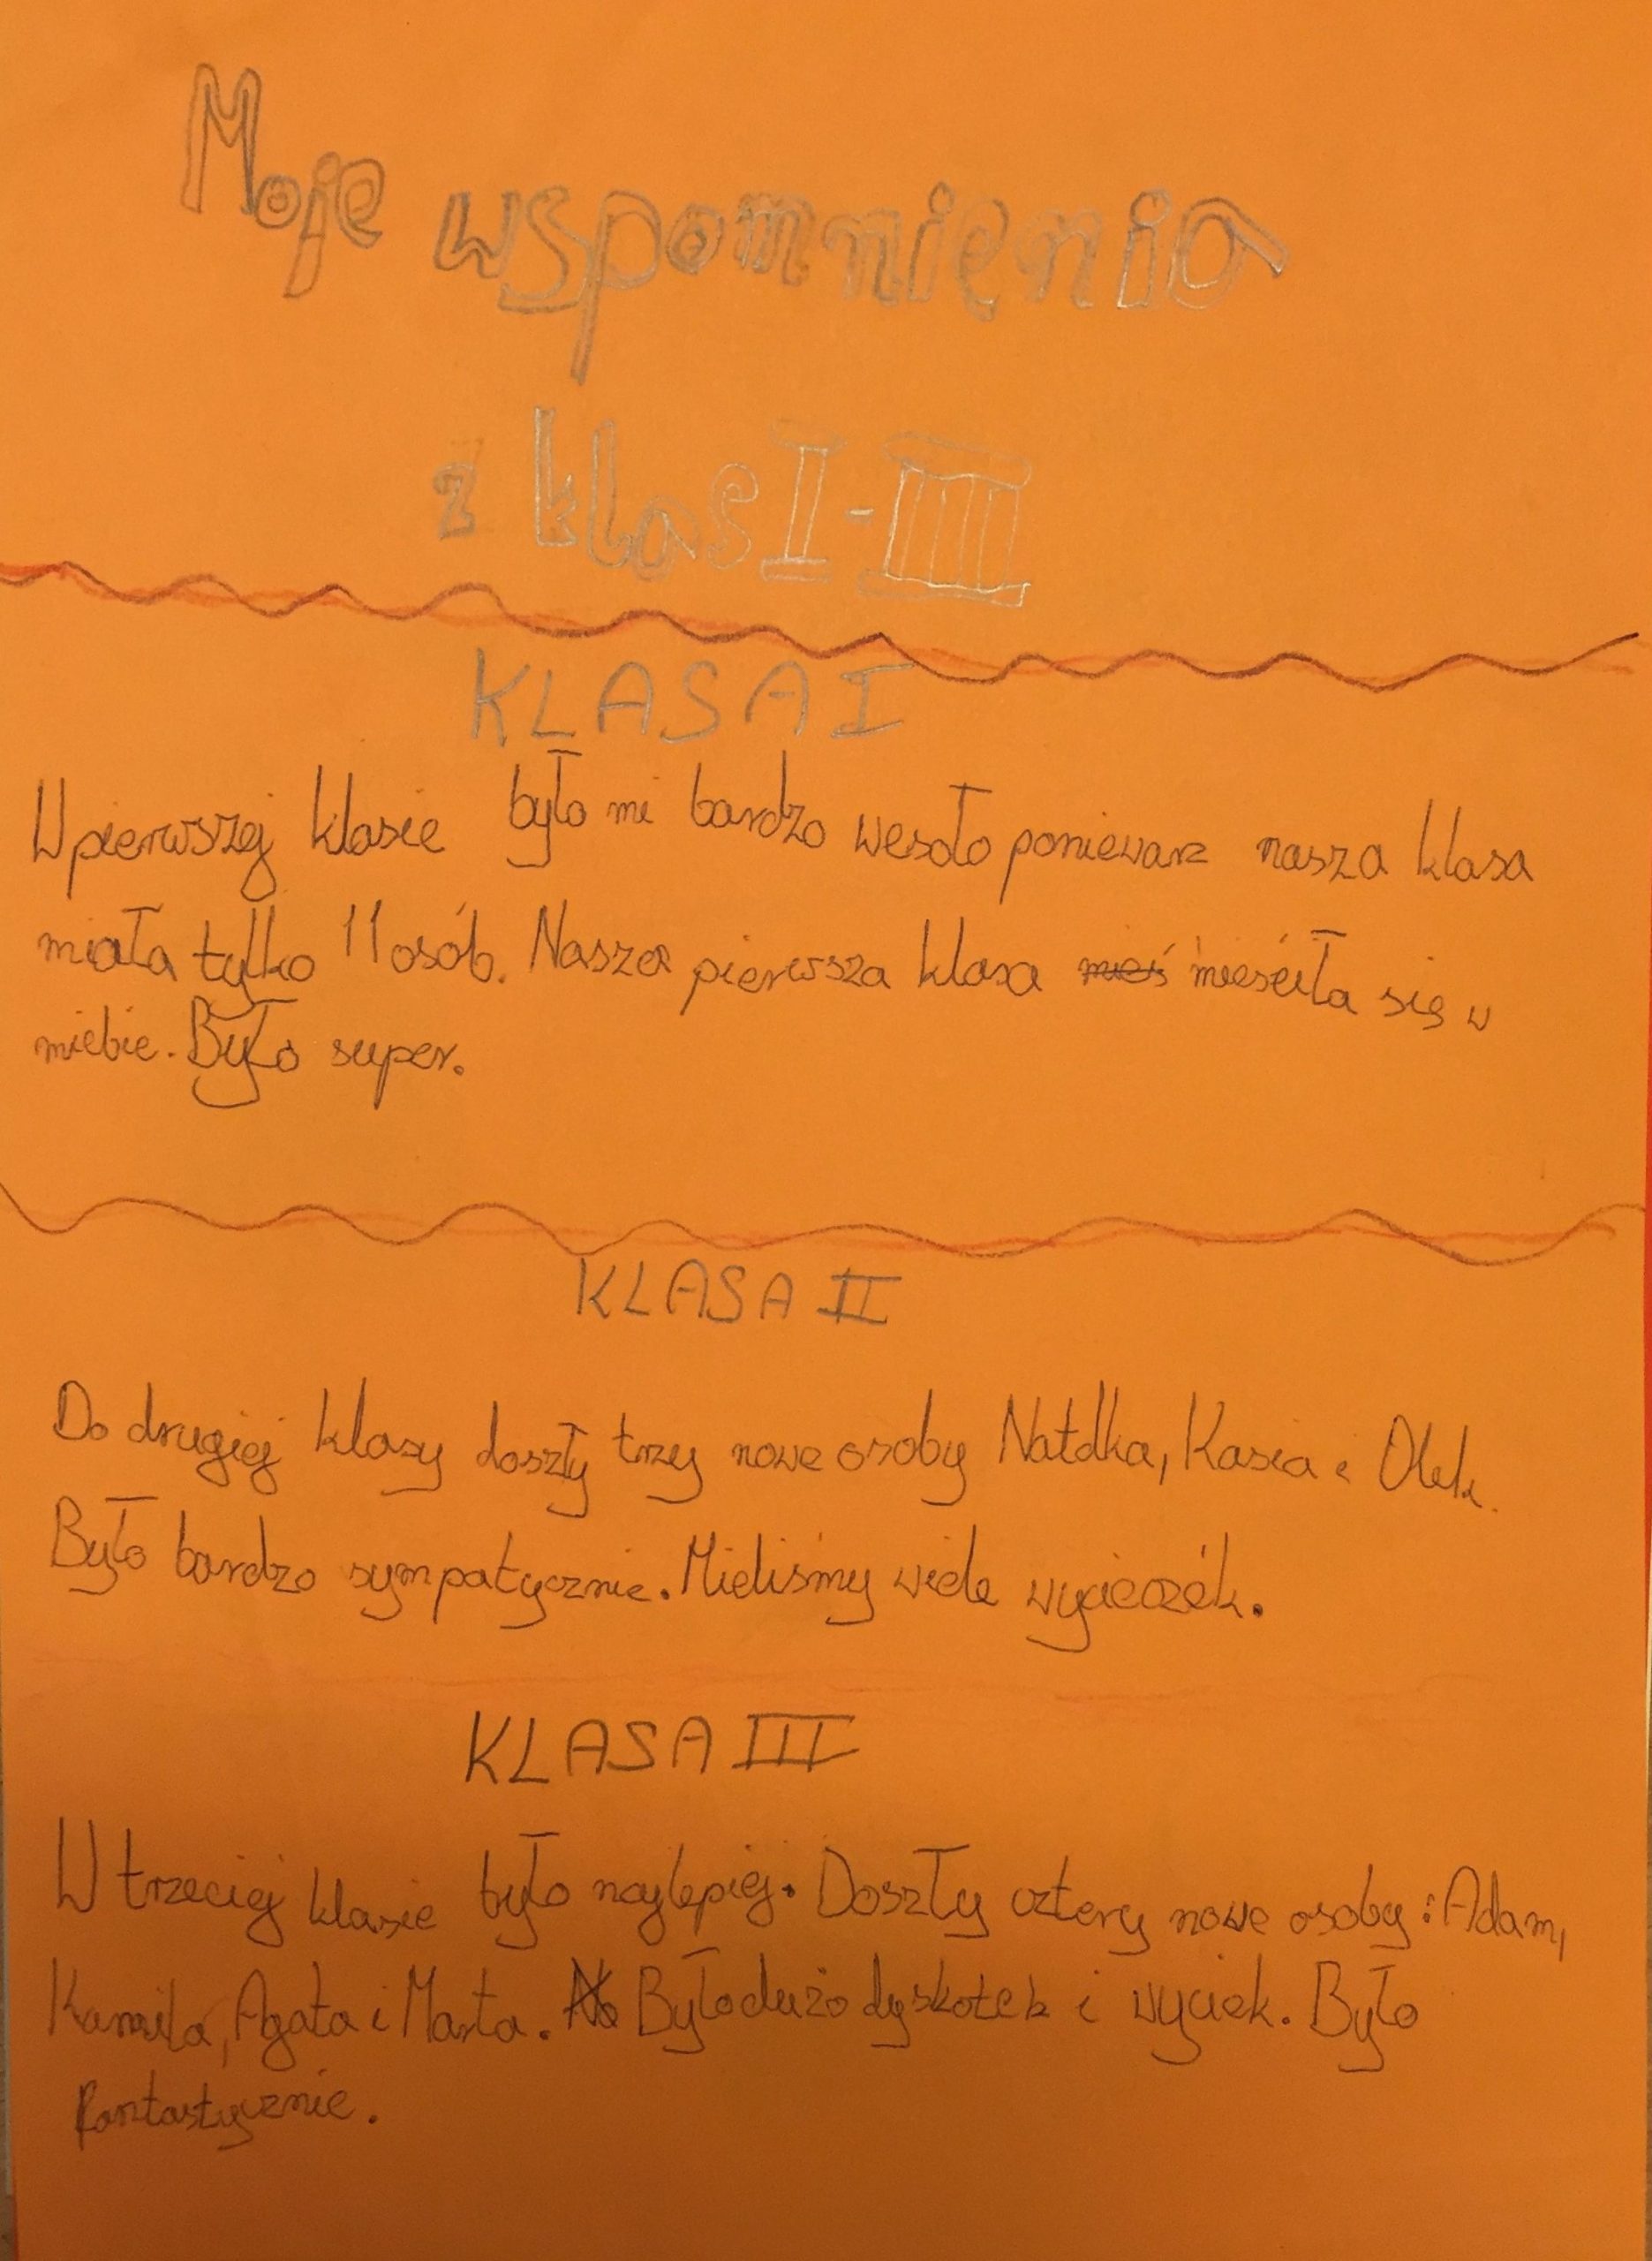 Moje wspomnienia
z klas I-III
KLASA I
W pierwszej klasie było mi bardzo wesoło poniewarz nasza klasa
miała tylko 11 osób. Nasza pierwsza klasa mieś mieściła się w
miebie. Było super.
KLASA II
Do drugiej klasy doszły trzy nowe osoby Natalka, Kasia i Olek.
Było bardzo sympatycznie. Mieliśmy wiele wycieczek.
KLASA III
W trzeciej klasie było najlepiej. Doszły cztery nowe osoby: Adam,
Kamila, Agata i Marta. Było dużo dyskotek i wyciek. Było
fantastycznie.